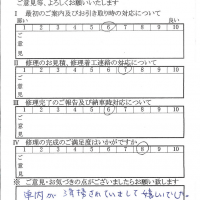 ご意見等、よろしくお願いいたします
Ⅰ 最初のご案内及びお引き取り時の対応について
悪い 良い
0 1 2 3 4 5 6 7 8 9 10
ご意見
Ⅱ 修理のお見積、修理着工連絡の対応について
0 1 2 3 4 5 6 7 8 9 10
ご意見
Ⅲ 修理完了のご報告及び納車時対応について
0 1 2 3 4 5 6 7 8 9 10
ご意見
Ⅳ 修理の完成のご満足度はいかがですか
0 1 2 3 4 5 6 7 8 9 10
ご意見
※ ご意見・お気づきの点がございましたらお願い致します
車内が清掃されていまして嬉しいでした。